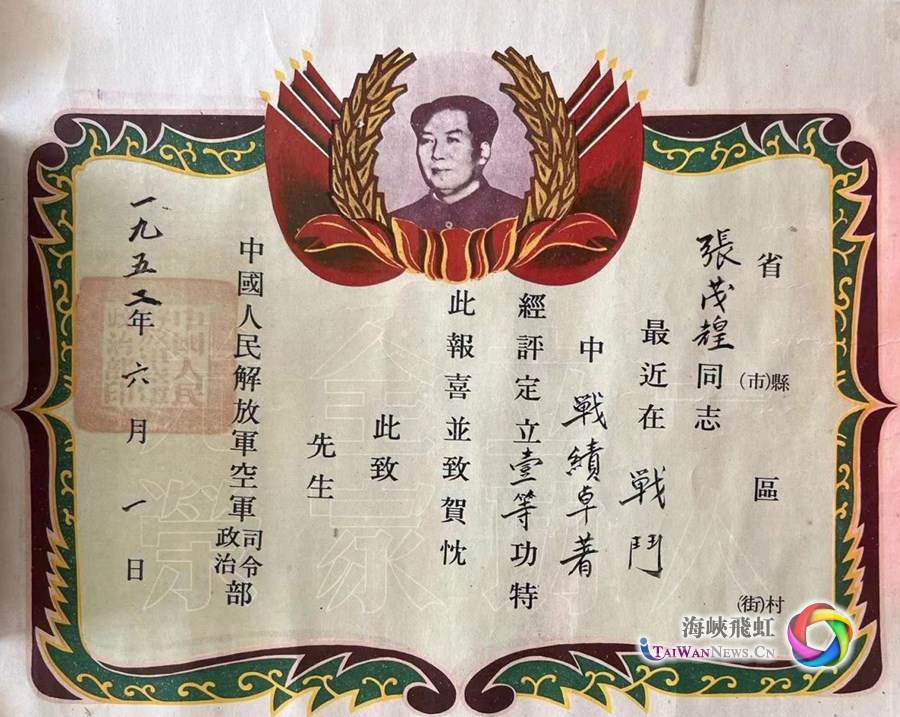 省 縣(市) 區 村(街)
張茂煌同志
最近在戦鬥
中戦績卓著
經評定立壹等功特
此報喜並致賀忱
此致
先生
中國人民解放軍空軍司令政治部
一九五二年六月一日
一人立功全家光榮
海峽飛虹
TAIWANNEWS.CN